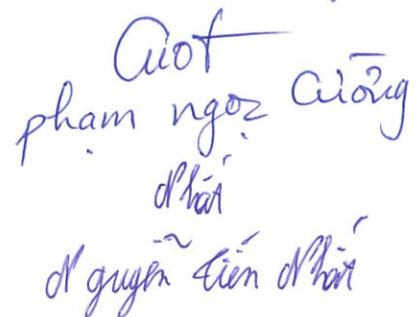 phạm ngọc Cường
Nhất
Nguyễn Tiến Nhất